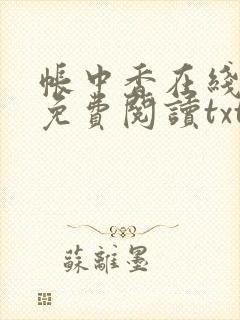 帳中香在綫
免費閱讀txt
蘇離墨